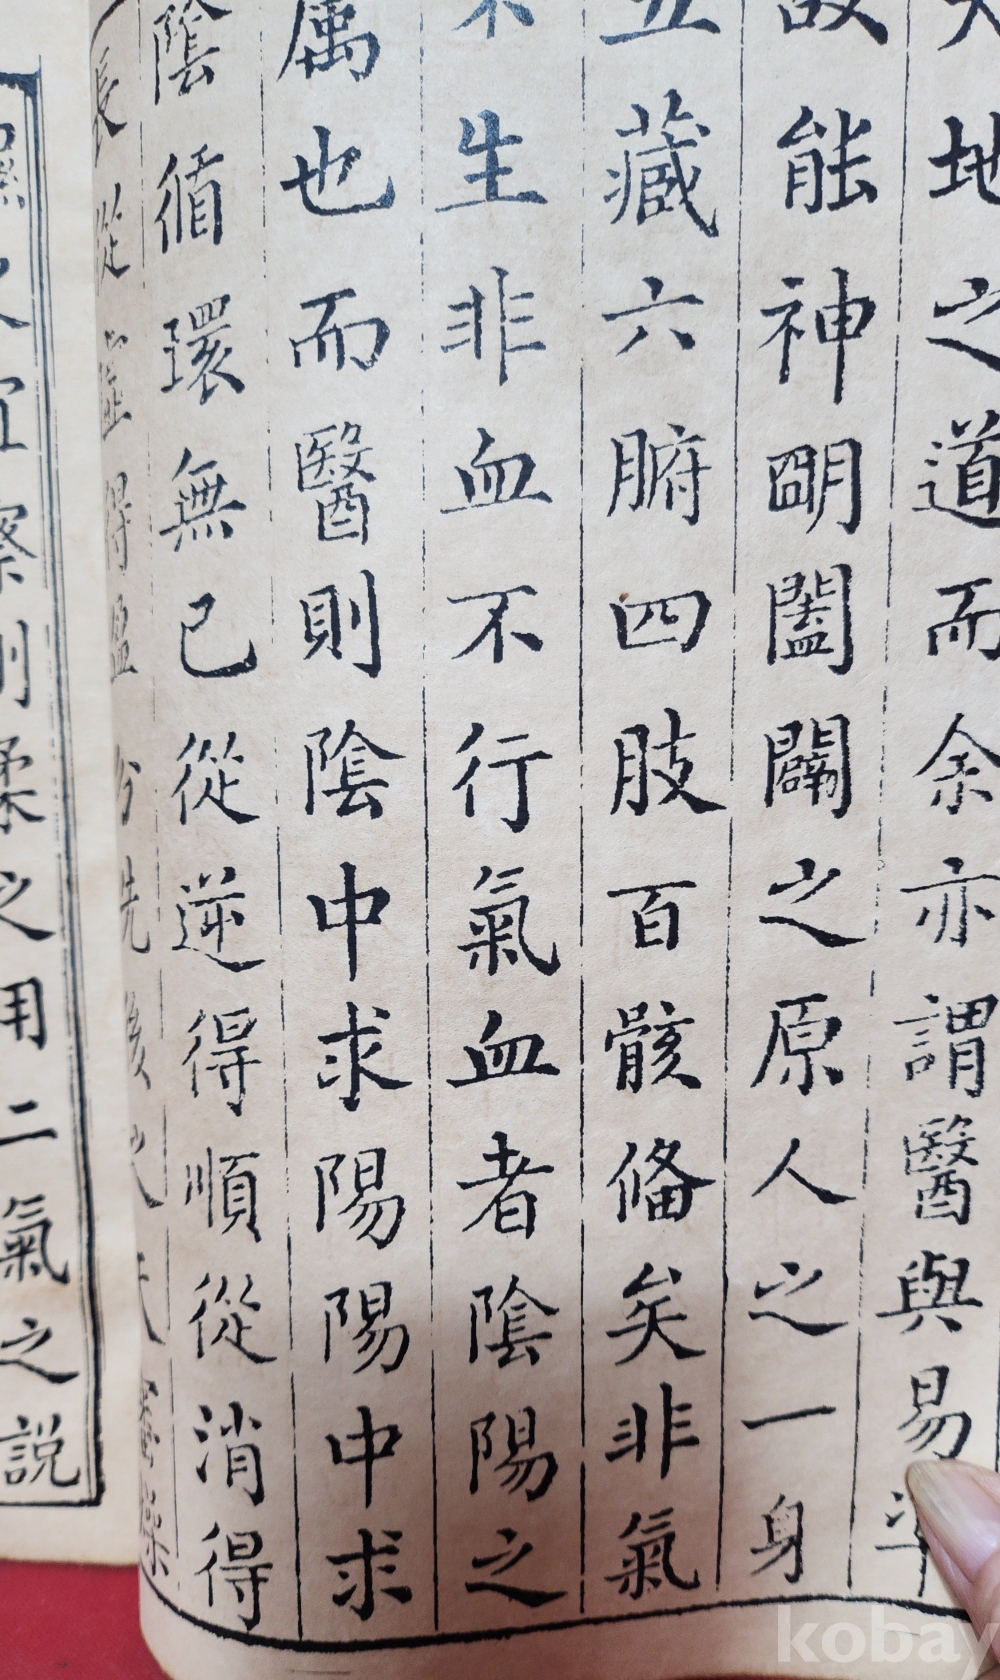 地之道而余亦謂醫與易
故能神明闔闢之原人之一身
五藏六腑四肢百骸俻矣非氣
不生非血不行氣血者陰陽之
属也而醫則陰中求陽陽中求
陰循環無已從逆得順從消得
長從虛得盈
用二氣之説
kobay